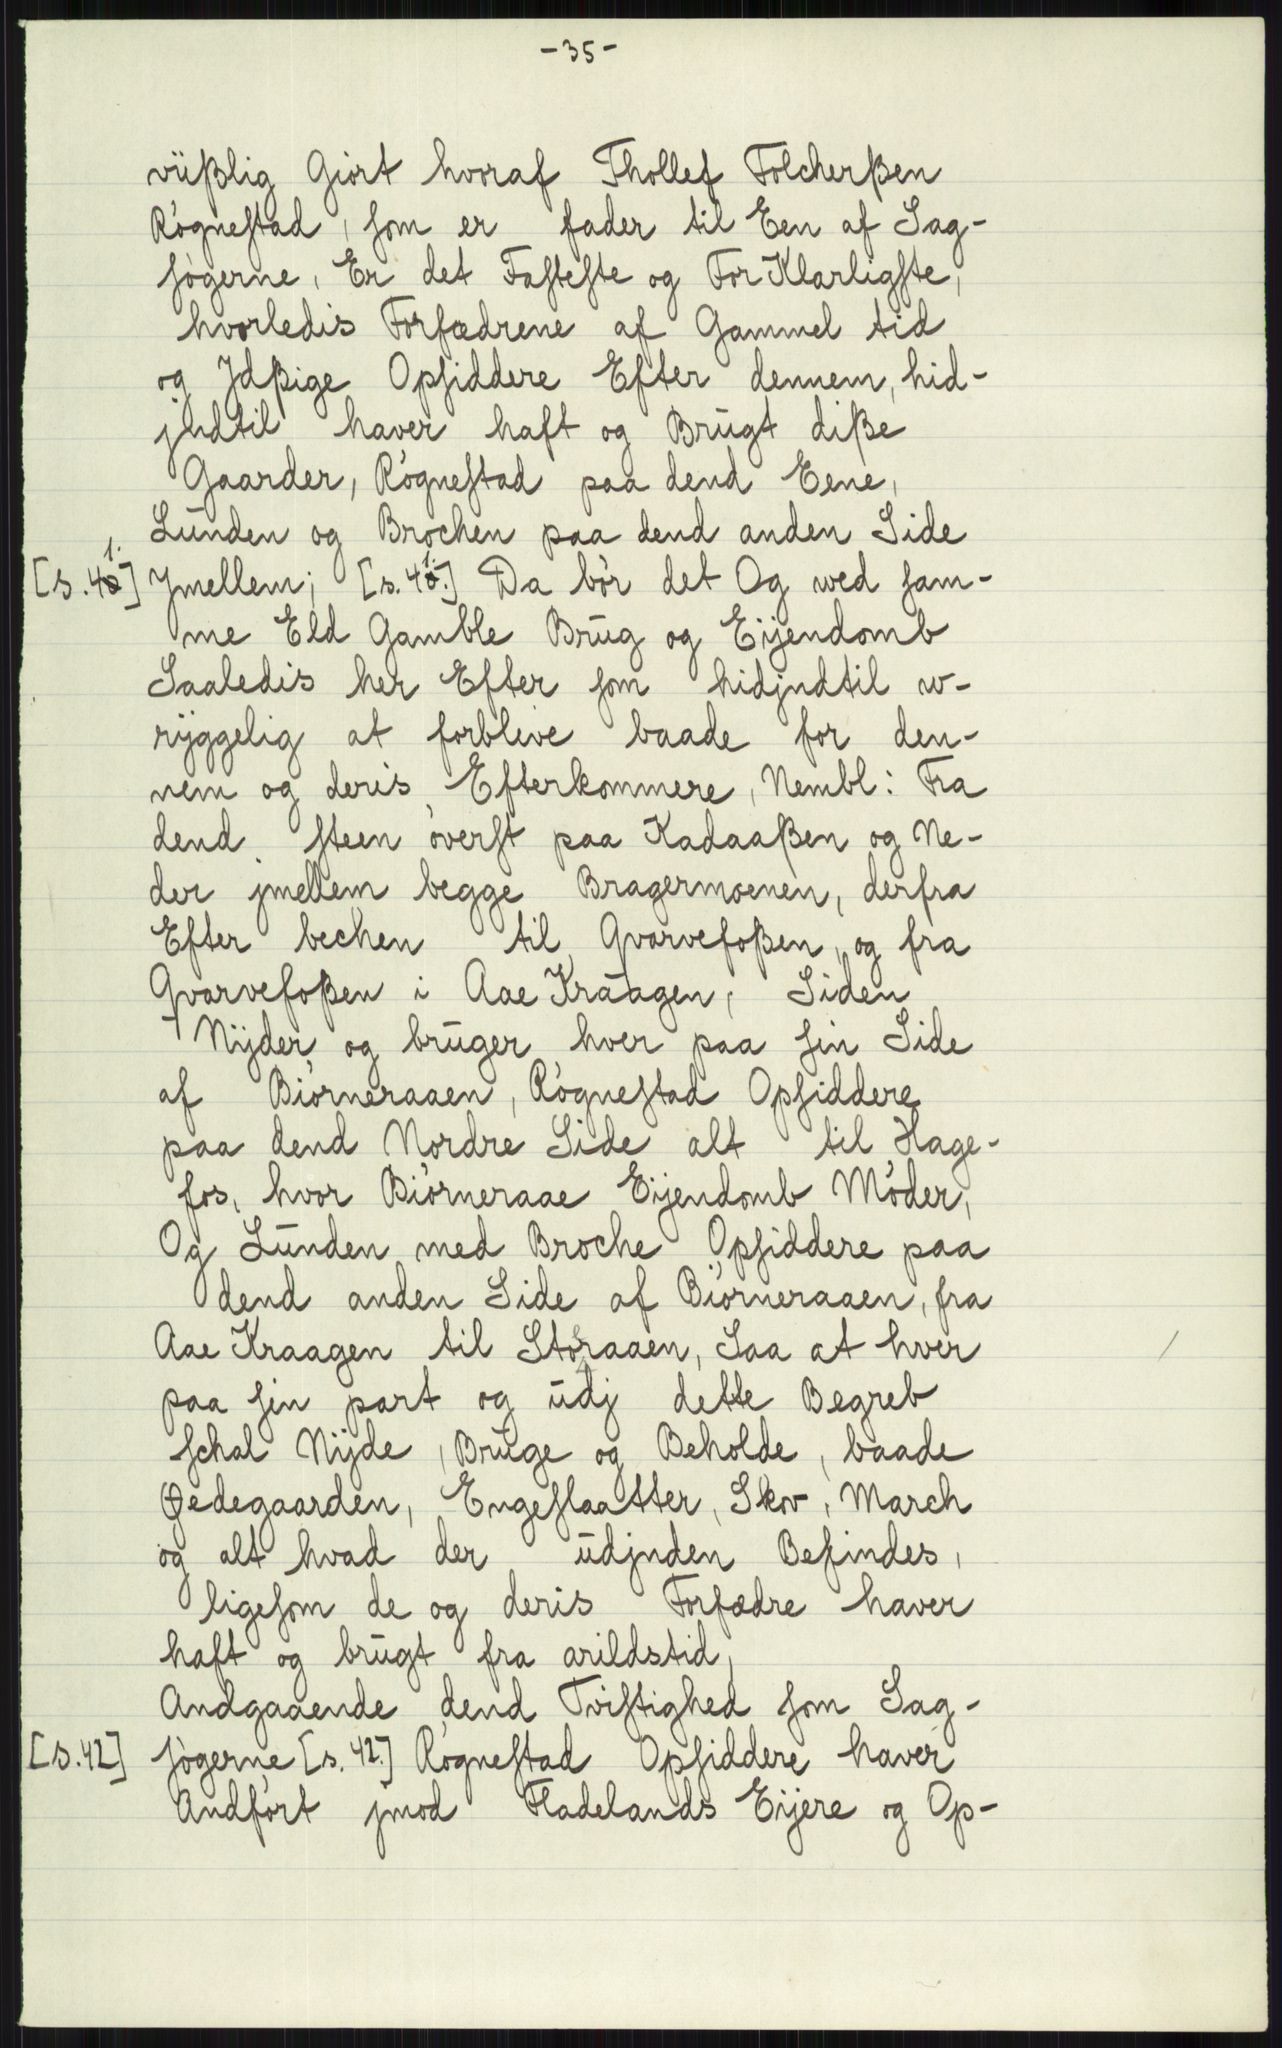 -35-
vüßlig Giort hvoraf Thollef Folcherßen
Rógnestad, som er fader til Een af Sag-
sógerne, Er det Fasteste og ForKlarligste,
hvorledis Forfædrene af Gammel tid
og Jdßige Opsiddere Efter dennem, hid-
jndtil haver haft og Brūgt diße
Gaarder, Rógnestad paa dend Eene,
Lūnden og Brochen paa dend anden Side
[s. 41.] Jmellem; [s. 41.] Da bór det Og wed sam-
me Eld Gamble Brūg og Eijendomb
Saaledis her Efter som hidjndtil w-
rÿggelig at forblive baade for den-
nem og deris Efterkommere, Nembl: Fra
dend steen óverst paa Kadaaßen og Ne-
der jmellem begge Bragermoenen, derfra
Efter bechen til Qvarvefoßen, og fra
Qvarvefoßen i Aae Kraagen, Siden
Nijder og brūger hver paa sin Side
af Biórneraaen, Rógnestad Opsiddere
paa dend Nordre Side alt til Hage-
fos, hvor Biórneraae Eijendomb Móder,
Og Lūnden med Broche Opsiddere paa
dend anden Side af Biórneraaen, fra
Aae Kraagen til Storaaen, Saa at hver
paa sin part og ūdj dette Begreb
schal Nijde, Brūge og Beholde, baade
Øedegaarden, Engeslaatter, Skov, March
og alt hvad der ūdjnden Befindes,
ligesom de og deris Forfædre haver
haft og brūgt fra arildstid,
Andgaaende dend Tvistighed som Sag-
[s. 42] sógerne [s. 42.] Rógnestad Opsiddere haver
Andfórt jmod Fladelands Eijere og Op-